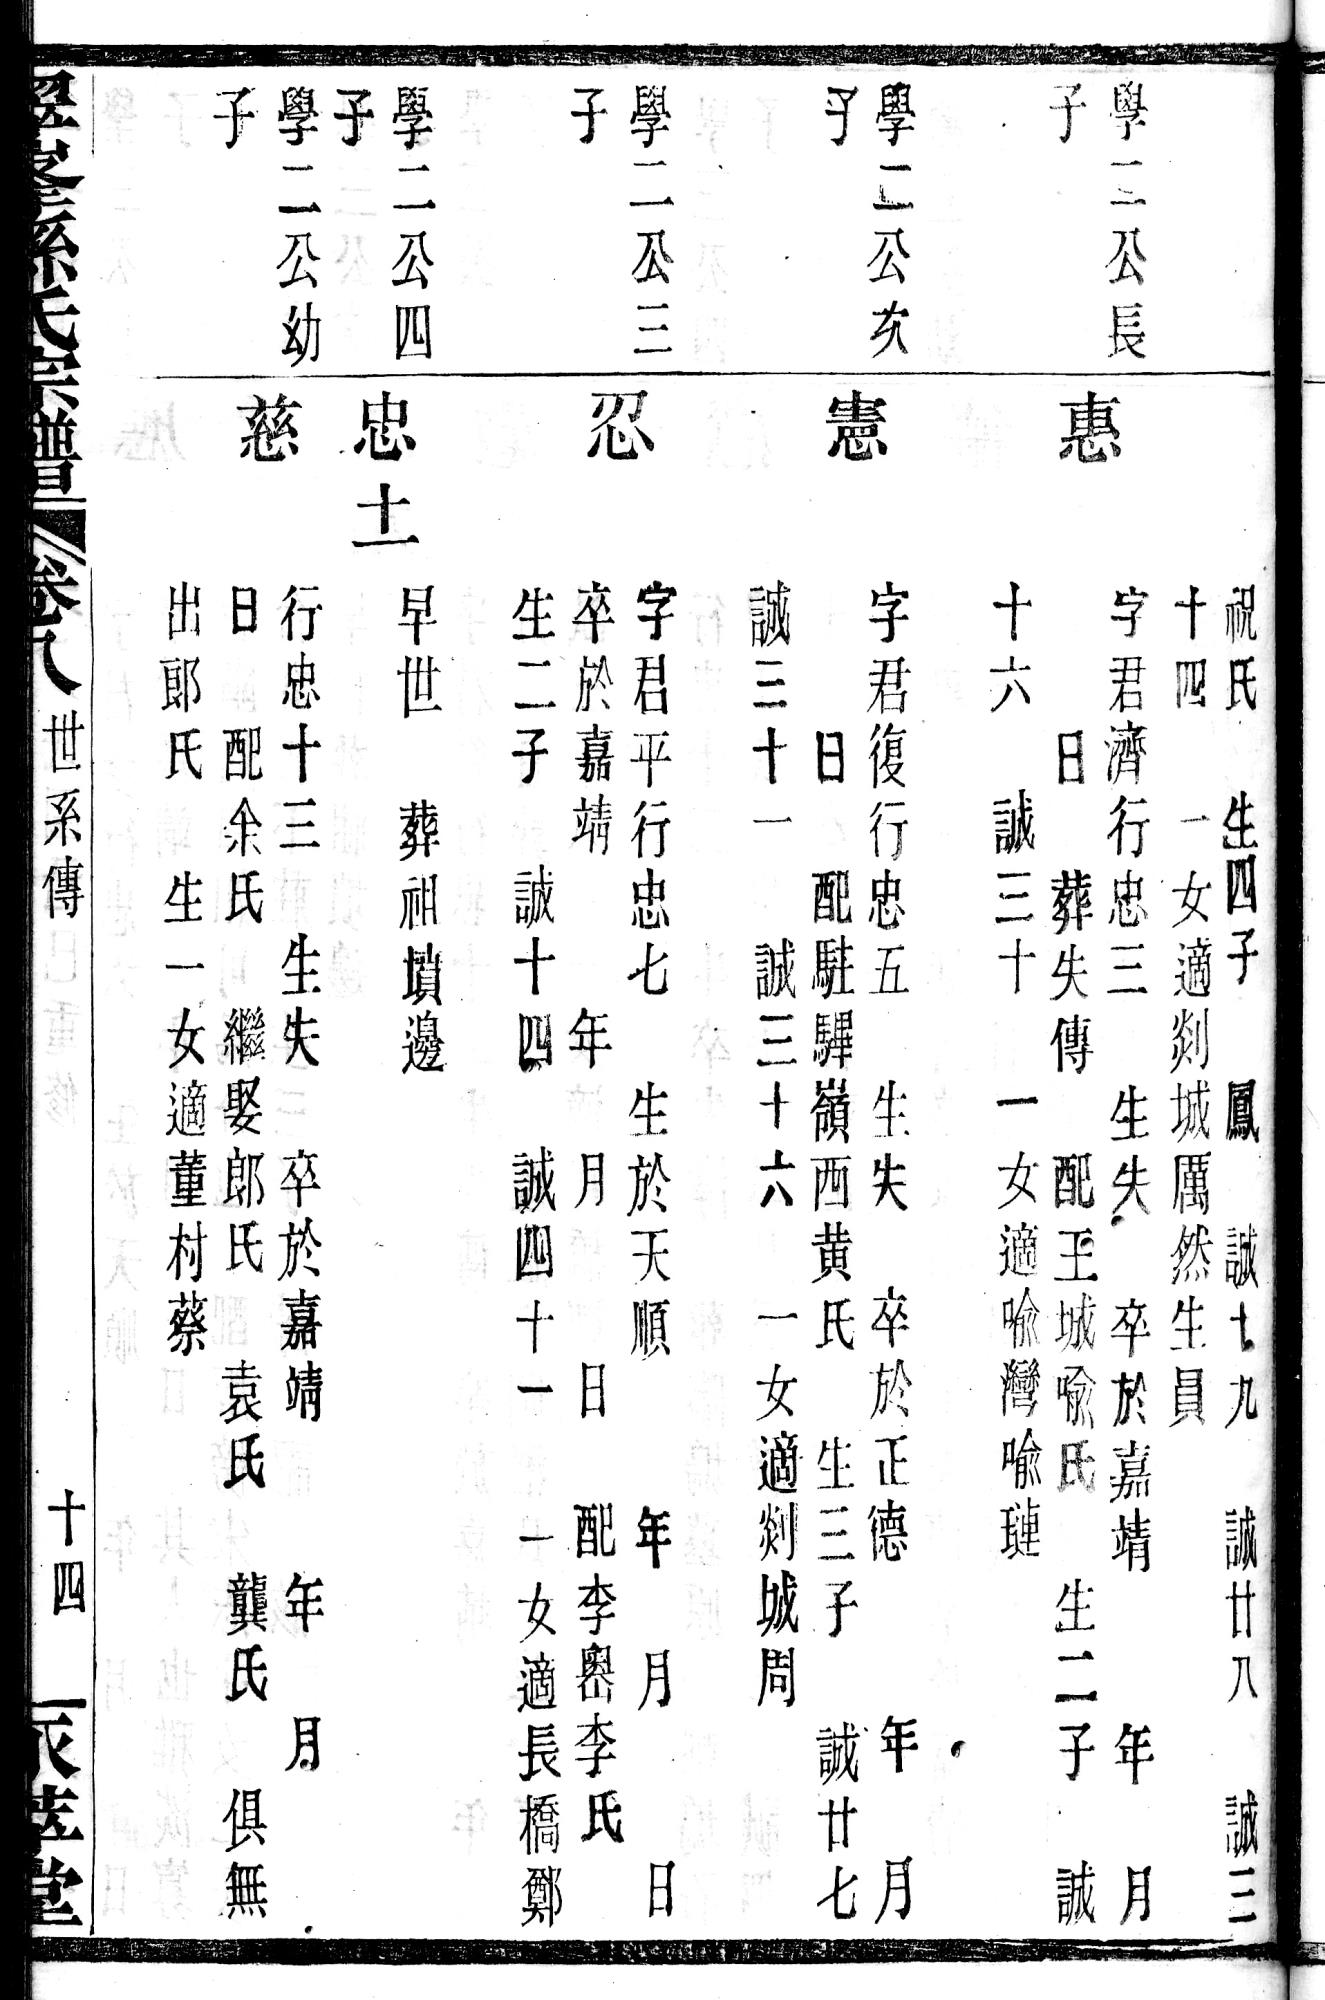 祝氏　生四子　鳳　誠十九　誠廿八　誠三
十四　一女適剡城厲然生員
學二公長
子
惠
字君濟行忠三　生失　卒於嘉靖　年　月
日　葬失傳　配王城喻氏　生二子　誠
十六　誠三十　一女適喻灣喻璉
學二公次
子
憲
字君復行忠五　生失　卒於正德　年　月
日　配駐驆嶺西黄氏　生三子　誠廿七
誠三十一　誠三十六　一女適剡城周
學二公三
子
忍
字君平行忠七　生於天順　年　月　日
卒於嘉靖　年　月　日　配李嶴李氏
生二子　誠十四　誠四十一　一女適長橋鄭
學二公四
子
忠十一
早世　葬祖墳邊
學二公幼
子
慈
行忠十三　生失　卒於嘉靖　年　月
日　配余氏　繼娶郎氏　袁氏　龔氏　俱無
出郎氏　生一女適董村蔡
孫氏宗譜　卷八　世系傳　十四　萃堂